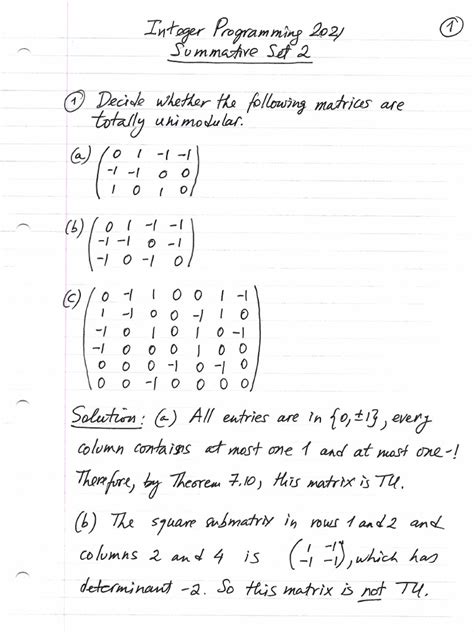 1
Integer Programming 2021
Summative Set 2
1 Decide whether the following matrices are
totally unimodular.
(a) ( 0 1 -1 -1
-1 -1 0 0
1 0 1 0 )
(b) ( 0 1 -1 -1
-1 -1 0 -1
-1 0 -1 0 )
(c) ( 0 -1 1 0 0 1 -1
1 -1 0 0 -1 1 0
-1 0 1 0 1 0 -1
-1 0 0 0 1 0 0
0 0 0 -1 0 -1 0
0 0 -1 0 0 0 0 )
Solution: (a) All entries are in {0,±1}, every
column contains at most one 1 and at most one -1
Therefore, by Theorem 7.10, this matrix is TU.
(b) The square submatrix in rows 1 and 2 and
columns 2 and 4 is ( 1 -1
-1 -1 ), which has
determinant -2. So this matrix is not TU.